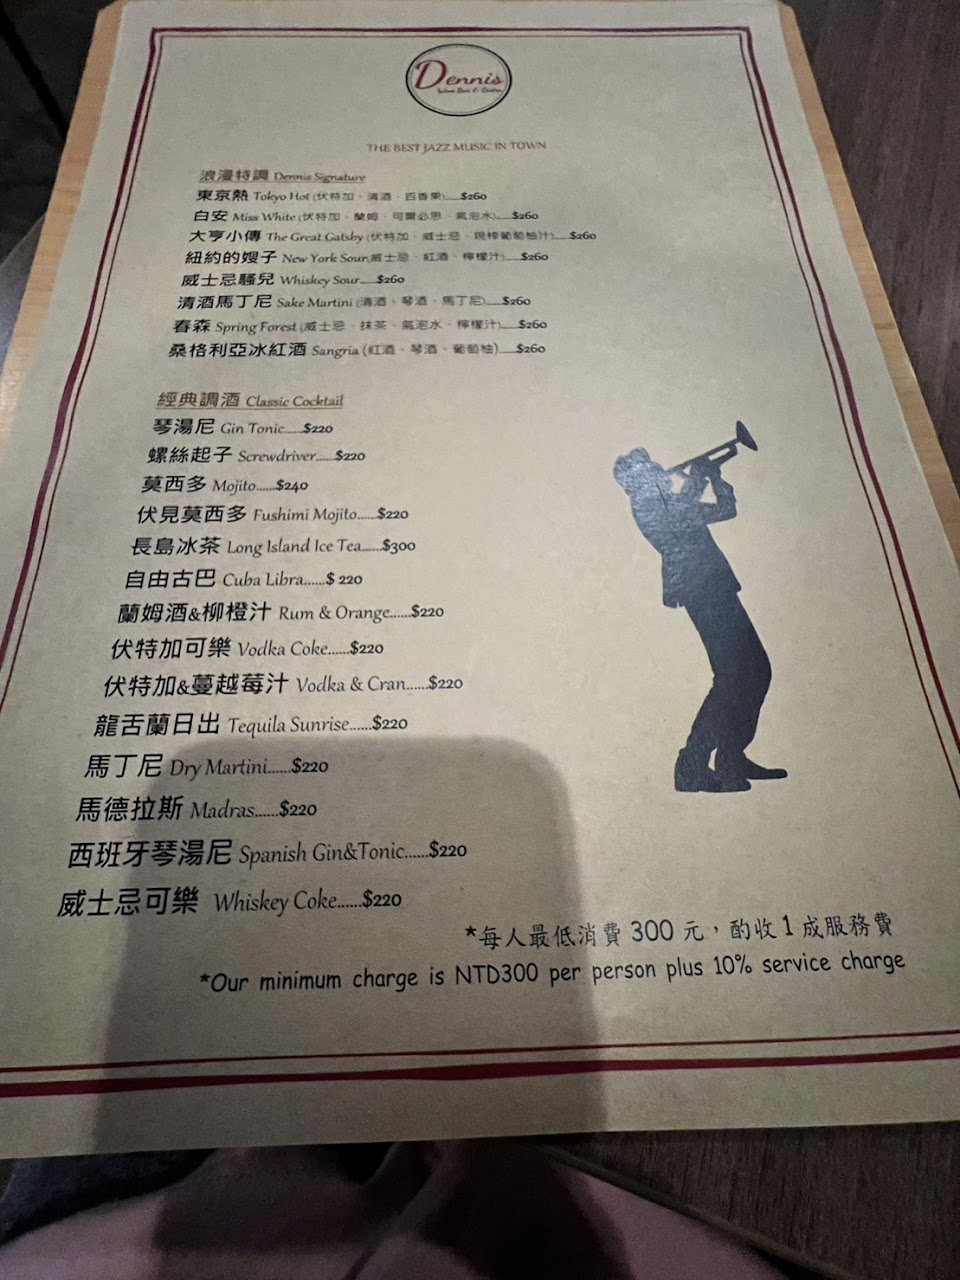 Dennis
THE BEST JAZZ MUSIC IN TOWN
浪漫特調 Dennis Signature
東京熱 Tokyo Hot (伏特加、清酒、百香果)......$260
白安 Miss White (伏特加、蘭姆、可爾必思、氣泡水)......$260
大亨小傳 The Great Gatsby (伏特加、威士忌、現榨葡萄柚汁)......$260
紐約的嫂子 New York Sour(威士忌、紅酒、檸檬汁)......$260
威士忌騷兒 Whiskey Sour......$260
清酒馬丁尼 Sake Martini (清酒、琴酒、馬丁尼)......$260
春森 Spring Forest (威士忌、抹茶、氣泡水、檸檬汁)......$260
桑格利亞冰紅酒 Sangria (紅酒、琴酒、葡萄柚)......$260
經典調酒 Classic Cocktail
琴湯尼 Gin Tonic......$220
螺絲起子 Screwdriver......$220
莫西多 Mojito......$240
伏見莫西多 Fushimi Mojito......$220
長島冰茶 Long Island Ice Tea......$300
自由古巴 Cuba Libra......$ 220
蘭姆酒&柳橙汁 Rum & Orange......$220
伏特加可樂 Vodka Coke......$220
伏特加&蔓越莓汁 Vodka & Cran......$220
龍舌蘭日出 Tequila Sunrise......$220
馬丁尼 Dry Martini......$220
馬德拉斯 Madras......$220
西班牙琴湯尼 Spanish Gin&Tonic......$220
威士忌可樂 Whiskey Coke......$220
*每人最低消費 300 元，酌收 1 成服務費
*Our minimum charge is NTD300 per person plus 10% service charge